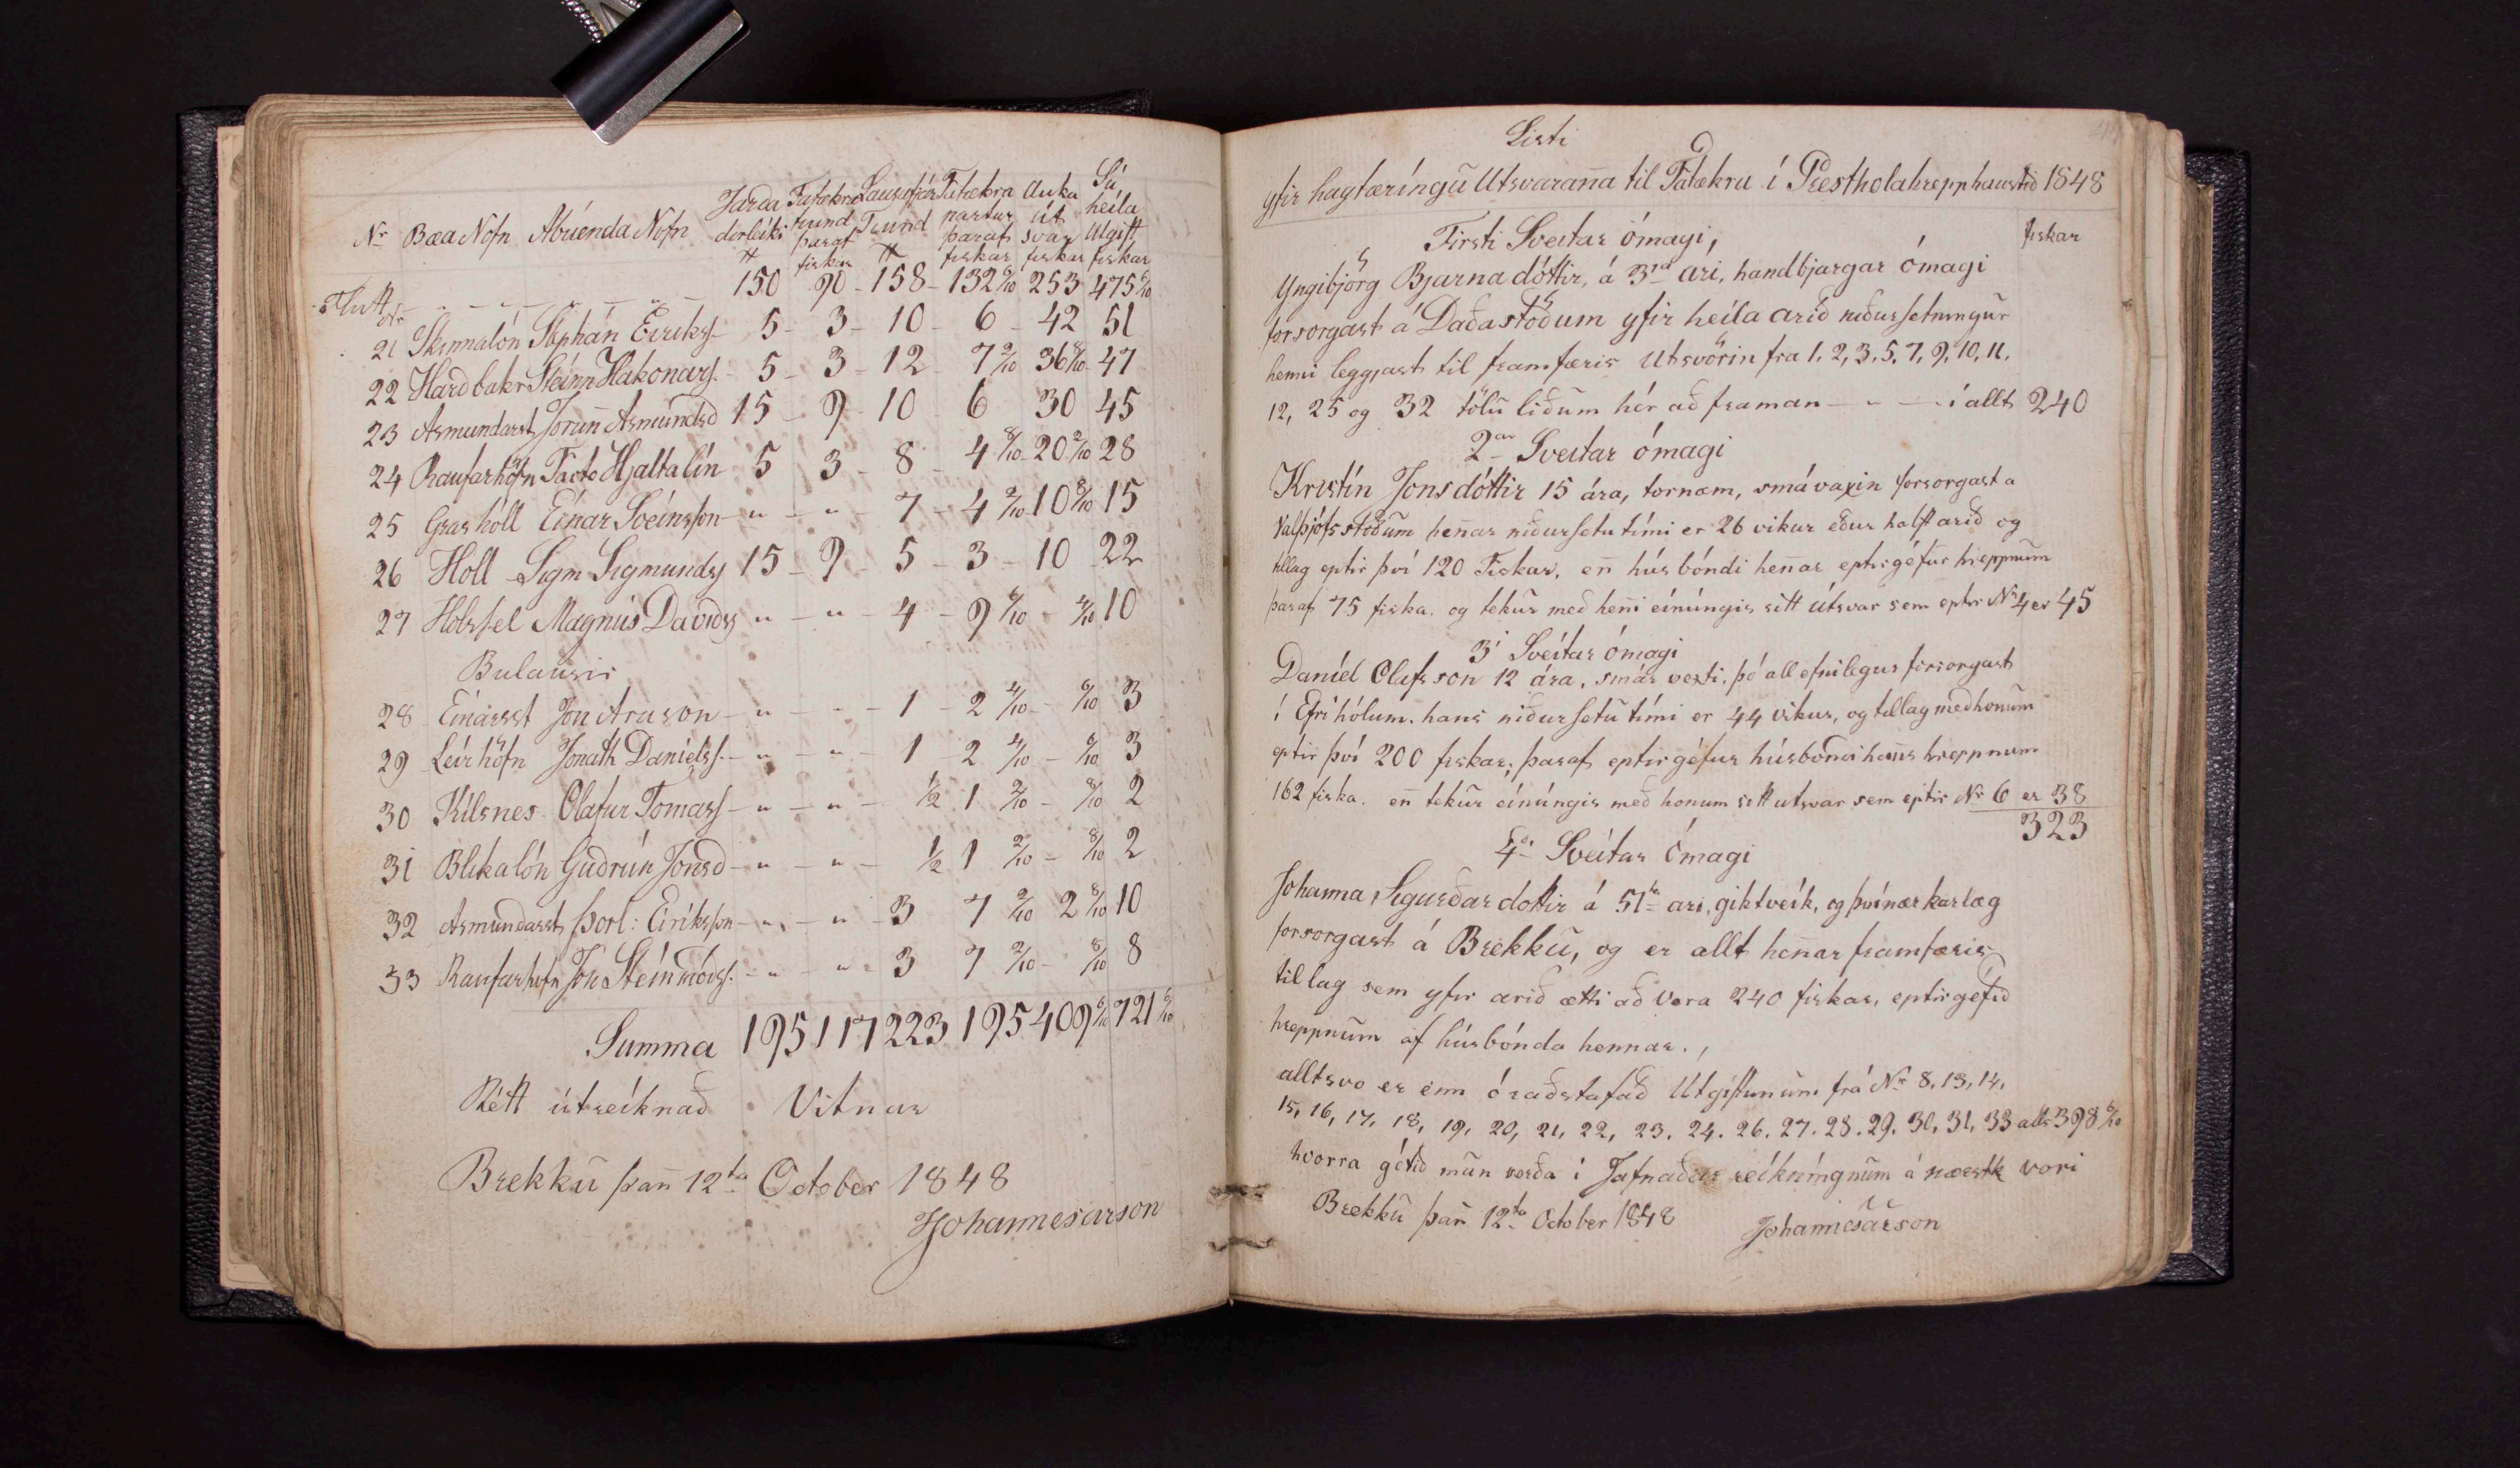 Nr Bæa Nofn Abúenda Nofn Jarda dyrleiki Fatækra tiund þaraf Lausafjár Tiund Fatækra partur þaraf Auka út svar Sú heila Utgift
tt fiskar tt fiskar fiskar fiskar
Flutt 150 90 - 158 - 132 6/10 253 475 6/10
21 Skinnalón Stephán Eirikss. 5 - 3 - 10 - 6 - 42 51
22 Hardbakr Steinn Hakonars. 5 - 3 - 12 - 7 2/10 36 8/10 47
23 Asmundarst Jorun̄ Asmundsd 15 - 9 - 10 - 6 30 45
24 Raufarhöfn Facto Hjaltalín 5 3 - 8 - 4 8/10 - 20 2/10 28
25 Grashóll Einar Sveinsson - „ - „ - 7 - 4 2/10 10 8/10 15
26 Holl Sigm Sigmundss 15 - 9 - 5 - 3 - 10 22
27 Holssel Magnús Davidss „ - „ - 4 - 9 6/10 - 4/10 10
Bulausir
28 Einarsst Jon Arason - „ - - - 1 - 2 4/10 - 6/10 3
29 Leirhöfn Jonath Daniélss. - „ - „ - 1 - 2 4/10 - 6/10 3
30 Kilsnes Olafur Tomass - „ - „ - 1/2 1 2/10 - 8/10 2
31 Blikalón Gudrún Jonsd - „ - „ - 1/2 1 2/10 - 8/10 2
32 Asmundarst Þorl: Eiríksson - „ - „ - 3 7 2/10 2 8/10 10
33 Raufarhofn Jón Steinmóds. - „ - „ - 3 7 2/10 - 8/10 8
Summa 195 117 223 195 409 6/10 721 6/10
Rétt útreiknað Vitnar
Brekku þan̄ 12ta October 1848
JohannesArson
Listi
yfir hagtæringu Utsvaran̄a til Fatækra í Prestholahrepp haustið 1848
fiskar
Firsti Sveitar ómagi,
Yngibjörg Bjarnadóttir, á 3ja ári, handbjargar ómagi
forsorgast á Daðastöðum yfir heila arið niðursetningur
henni leggjast til framfæris Utsvörin fra 1, 2, 3, 5, 7, 9, 10, 11,
12, 25 og 32 tölu liðum hér að framan - „ - - í allt 240
2ar Sveitar ómagi
Kristín Jonsdóttir 15 ára, tornæm, smávaxin forsorgast a
Valþjófsstöðum hen̄ar niðursetu tími er 26 vikur eður halft arið og
tillag eptir því 120 Fiskar, en̄ húsbóndi hen̄ar eptirgéfur hreppnum
þaraf 75 fiska, og tekur með hen̄i einúngis sitt útsvar sem eptir Nr 4 er 45
3i Sveitar ómagi
Daníel Olafsson 12 ára, smár vexti, þó all efnilegur forsorgast
í Efrihólum, hans niðursetu tími er 44 vikur, og tillag med honum
eptir því 200 fiskar; þaraf eptirgéfur húsbóndi hans hreppnum
162 fiska. en̄ tekur einúngis með honum sitt utsvar sem eptir Nr 6 er 38
323
4di Sveitar Ómagi
Johanna Sigurðardottir á 51ta ari, giktveik, og þvínær karlæg
forsorgast á Brekku, og er allt hen̄ar framfæris
tillag sem yfir arið ætti að vera 240 fiskar, eptirgéfið
hreppnum af húsbónda hennar.,
alltsvo er enn óraðstafað Utgiftunum frá Nr 8, 13, 14,
15, 16, 17, 18, 19, 20, 21, 22, 23. 24. 26. 27. 28. 29. 30, 31, 33 alls 398 6/10
hvorra gétið mun verða í Jafnaðar reikningnum á næstk vori
Brekku þan̄ 12ta October 1848 JohannesArson